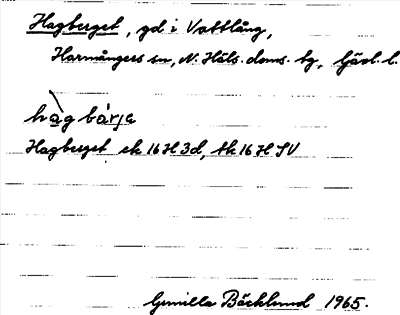 Hagberget, gd i Vattlång,
Harmångers sn, N. Häls. doms. tg, Gävl. l.
hàg bárjə
Hagberget ek 16 H 3d, tk 16 H SV
Gunilla Bäcklund 1965.